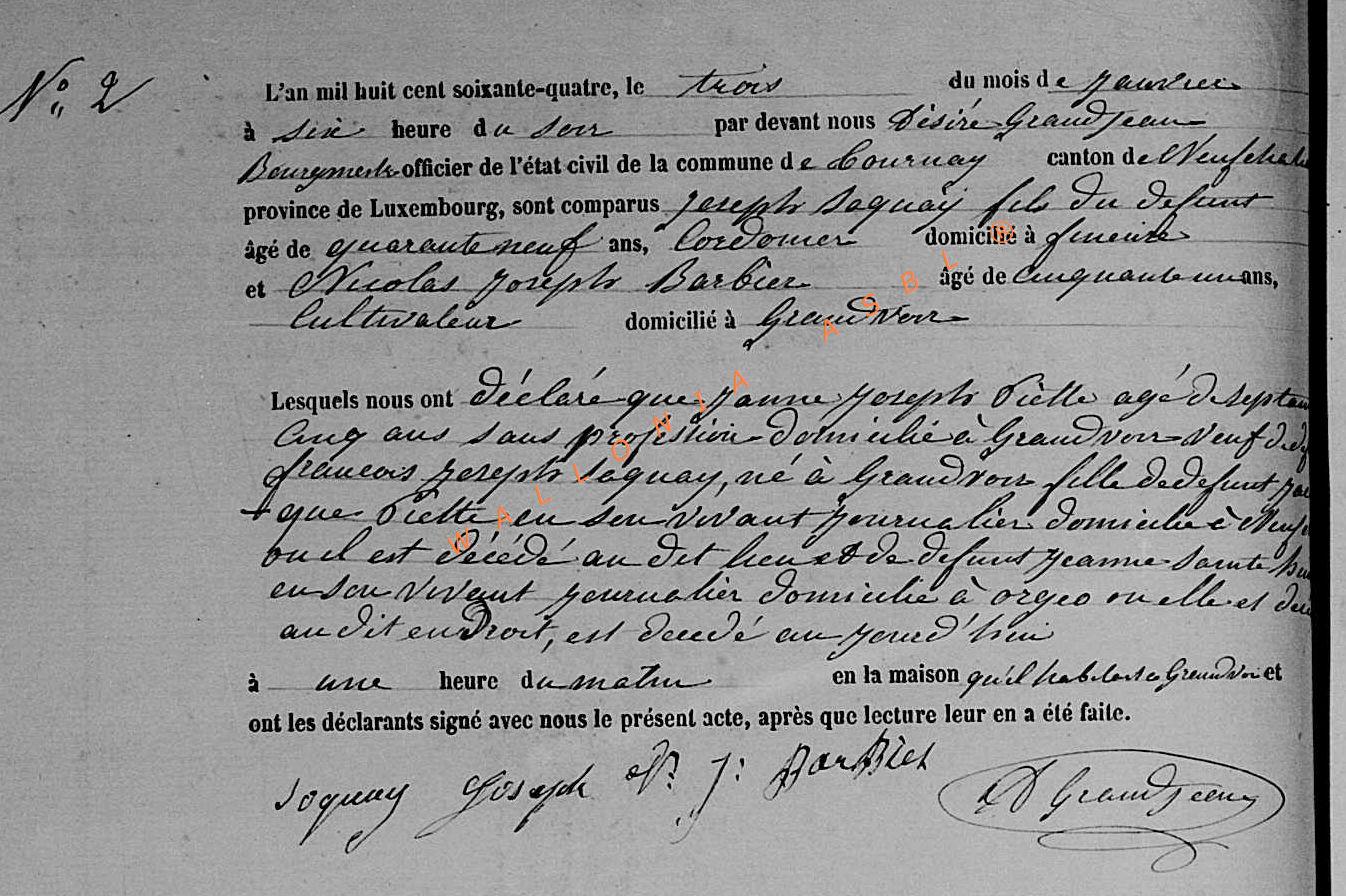 N°. 2
L'an mil huit cent soixante-quatre, le trois du mois de Janvier
à six heure du soir par devant nous Désiré Grandjean
Bourgmestre officier de l'état civil de la commune de Tournay canton de Neufchate
province de Luxembourg, sont comparus Joseph Soquay fils du defunt
âgé de quarante neuf ans, Cordonier domicilié à
et Nicolas Joseph Barbier âgé de Cinquante un ans,
Cultivateur domicilié à Grandvoir
Lesquels nous ont déclaré que Jeanne Joseph Piette agé de septan
Cinq ans sans profession domicilié à Grandvoir veuf de
francois Joseph Soquay, né à Grandvoir fille de defunt
que Piette en son vivant journalier domicilié à
ou il est décédé au dit lieu et de defunt Jeanne
en son vivant journalier domicilié à orgeo ou elle et
au dit endroit, est decedé au jourd'hui
à une heure du matin en la maison qu'il habitait à Grandvoir et
ont les déclarants signé avec nous le présent acte, après que lecture leur en a été faite.
Soquay Joseph N. J: Barbier D Grandjean
WALLONIA ASBL ©